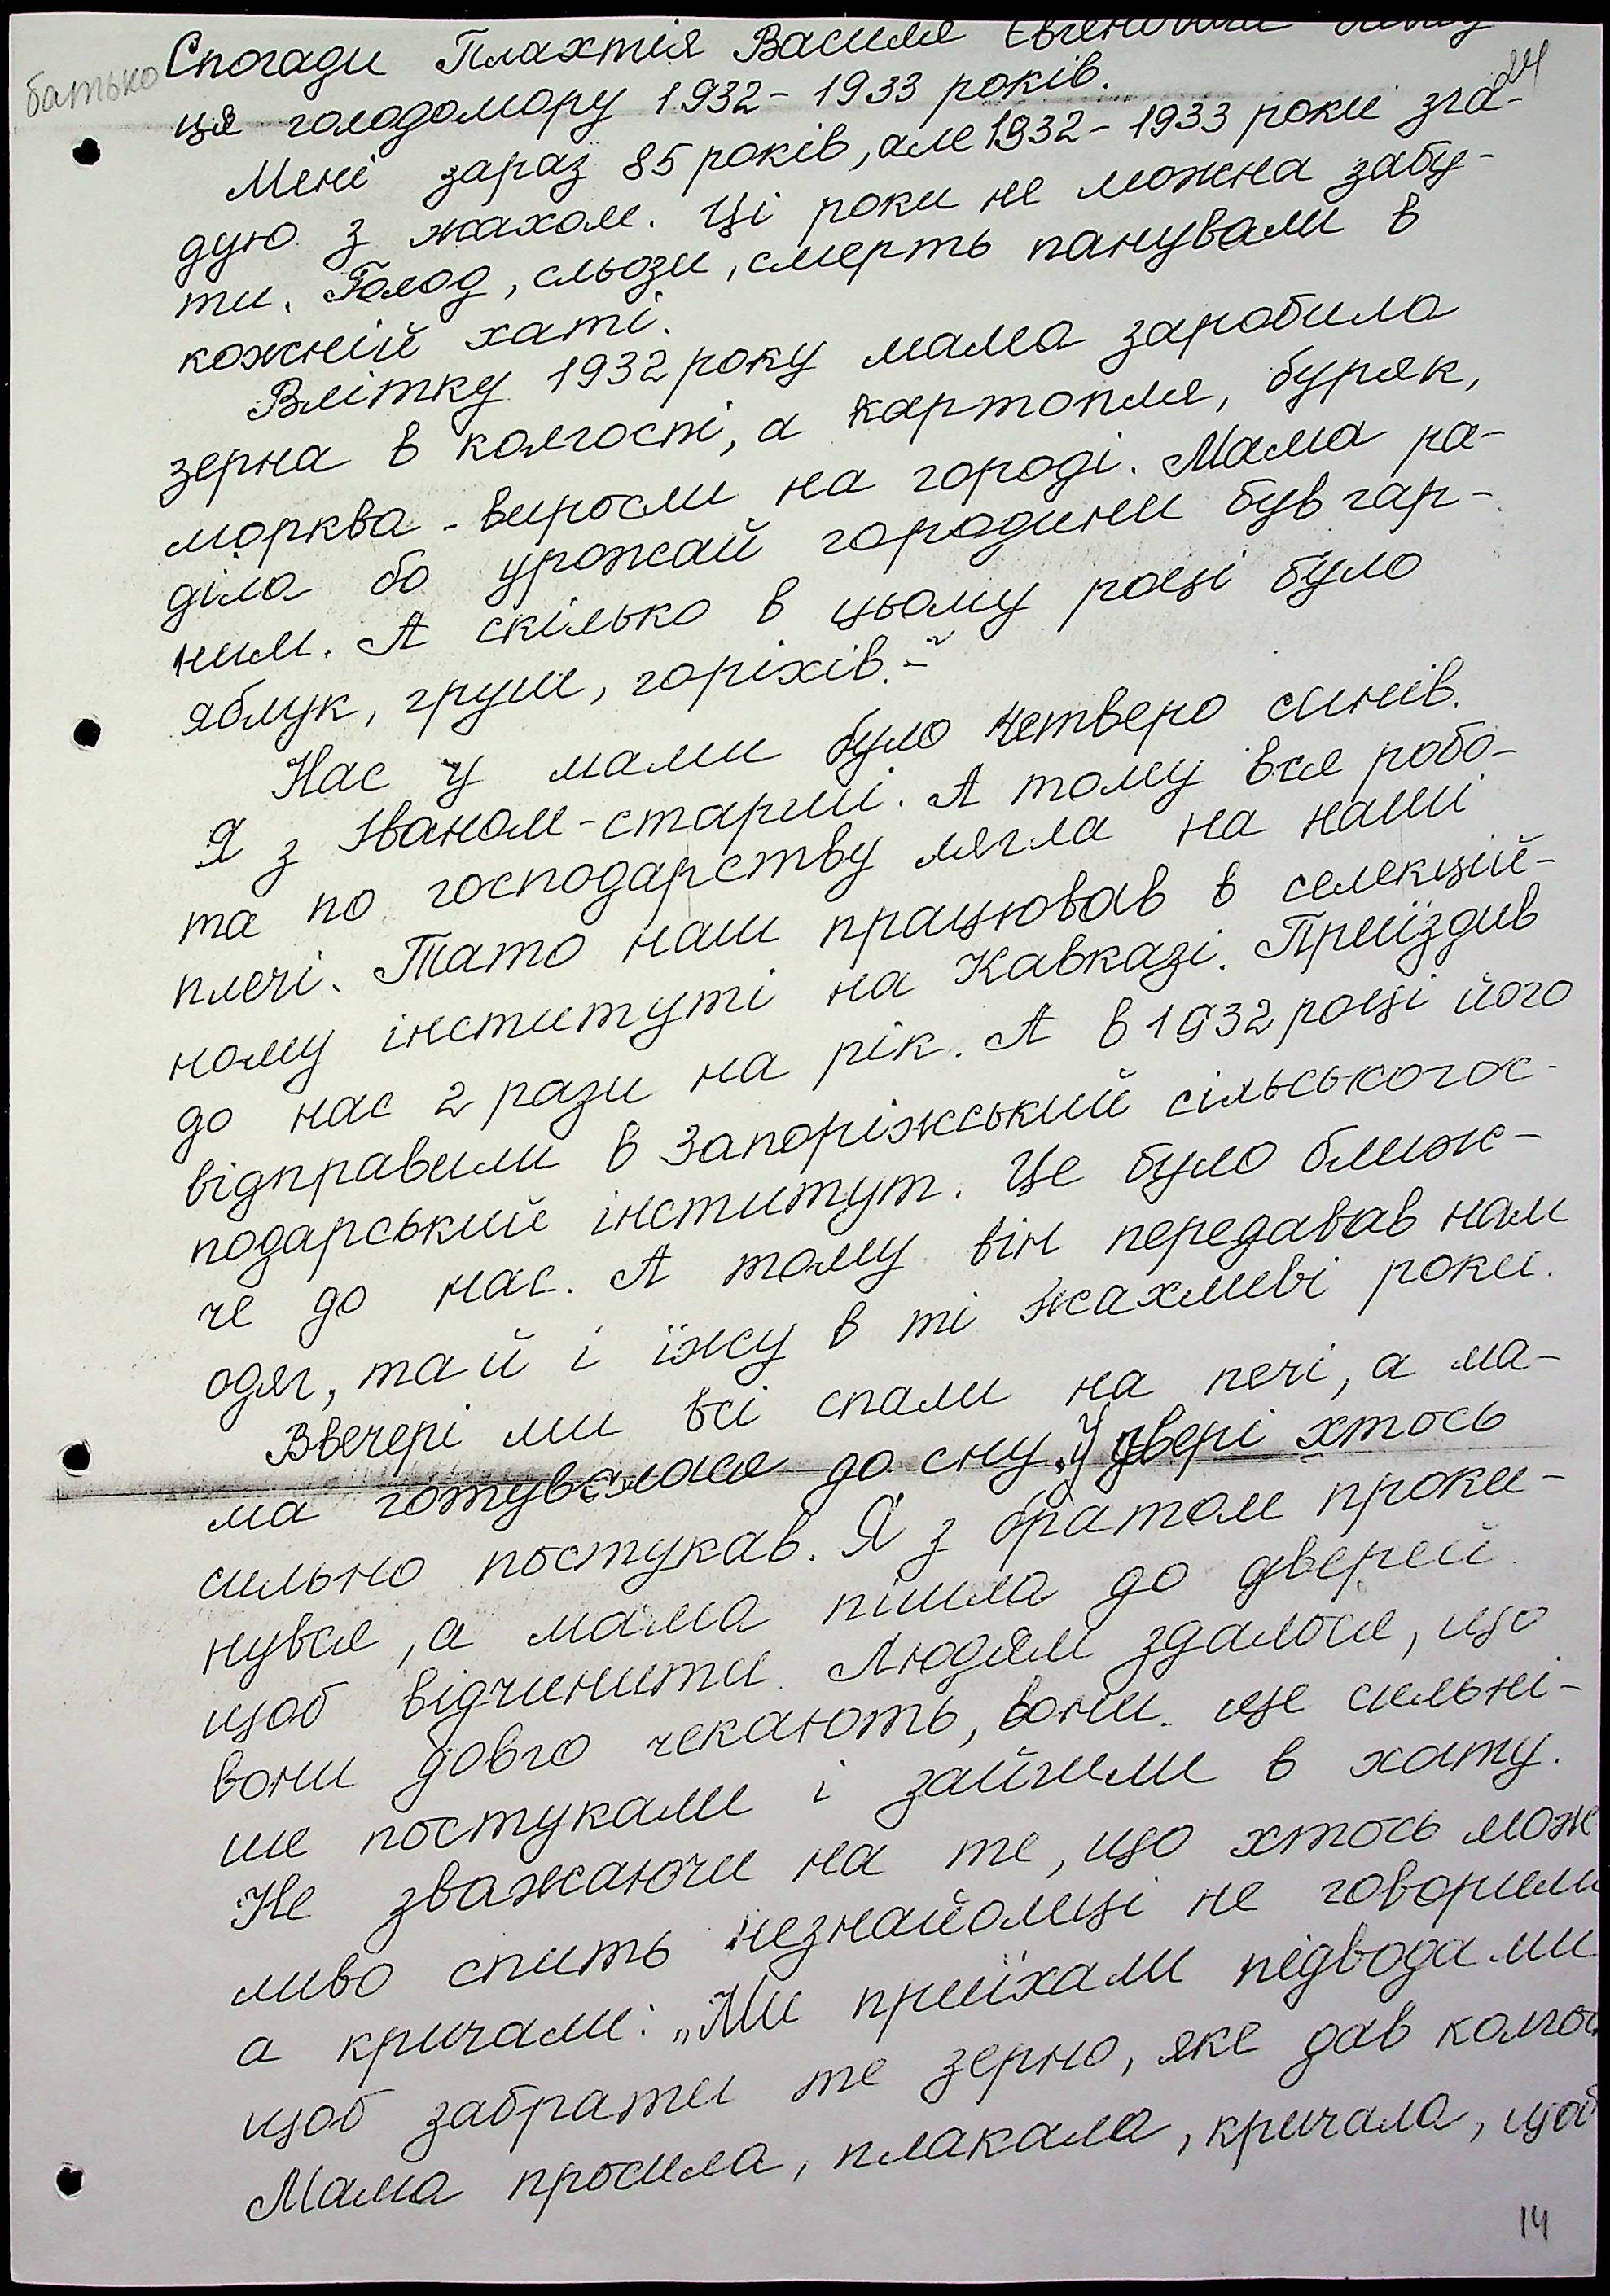 Спогади Плахтія Василя Євгеновича
батько
24
ця голодомору 1932-1933 років.
Мені зараз 85 років, але 1932-1933 роки зга-
дую з жахом. Ці роки не можна забу-
ти. Голод, сльози, смерть панували в
кожній хаті.
Влітку 1932 року мама заробила
зерна в колгоспі, а картопля, буряк,
морква - виросли на городі. Мама ра-
діла бо урожай городини був гар-
ним. А скілько в цьому році було
яблук, груш, горіхів.
Нас у мами було четверо синів.
Я з Іваном - старші. А тому вся робо-
та по господарству лягла на наші
плечі. Тато наш працював в селекцій-
ному інституті на Кавказі. Приїздив
до нас 2 рази на рік. А в 1932 році його
відправили в Запоріжський сільськогос-
подарський інститут. Це було ближ-
че до нас. А тому він передавав нам
одяг, та й і їжу в ті жахливі роки.
Ввечері ми всі спали на печі, а ма-
ма готувалася до сну. У двері хтось
сильно постукав. Я з братом проки-
нувся, а мама пішла до дверей
щоб відчинити. Людям здалося, що
вони довго чекають, вони ще сильні-
ше постукали і зайшли в хату.
Не зважаючи на те, що хтось мож
ливо спить незнайомці не говорили
а кричали: „Ми приїхали підводами
щоб забрати те зерно, яке дав колгос
Мама просила, плакала, кричала, щоб
14